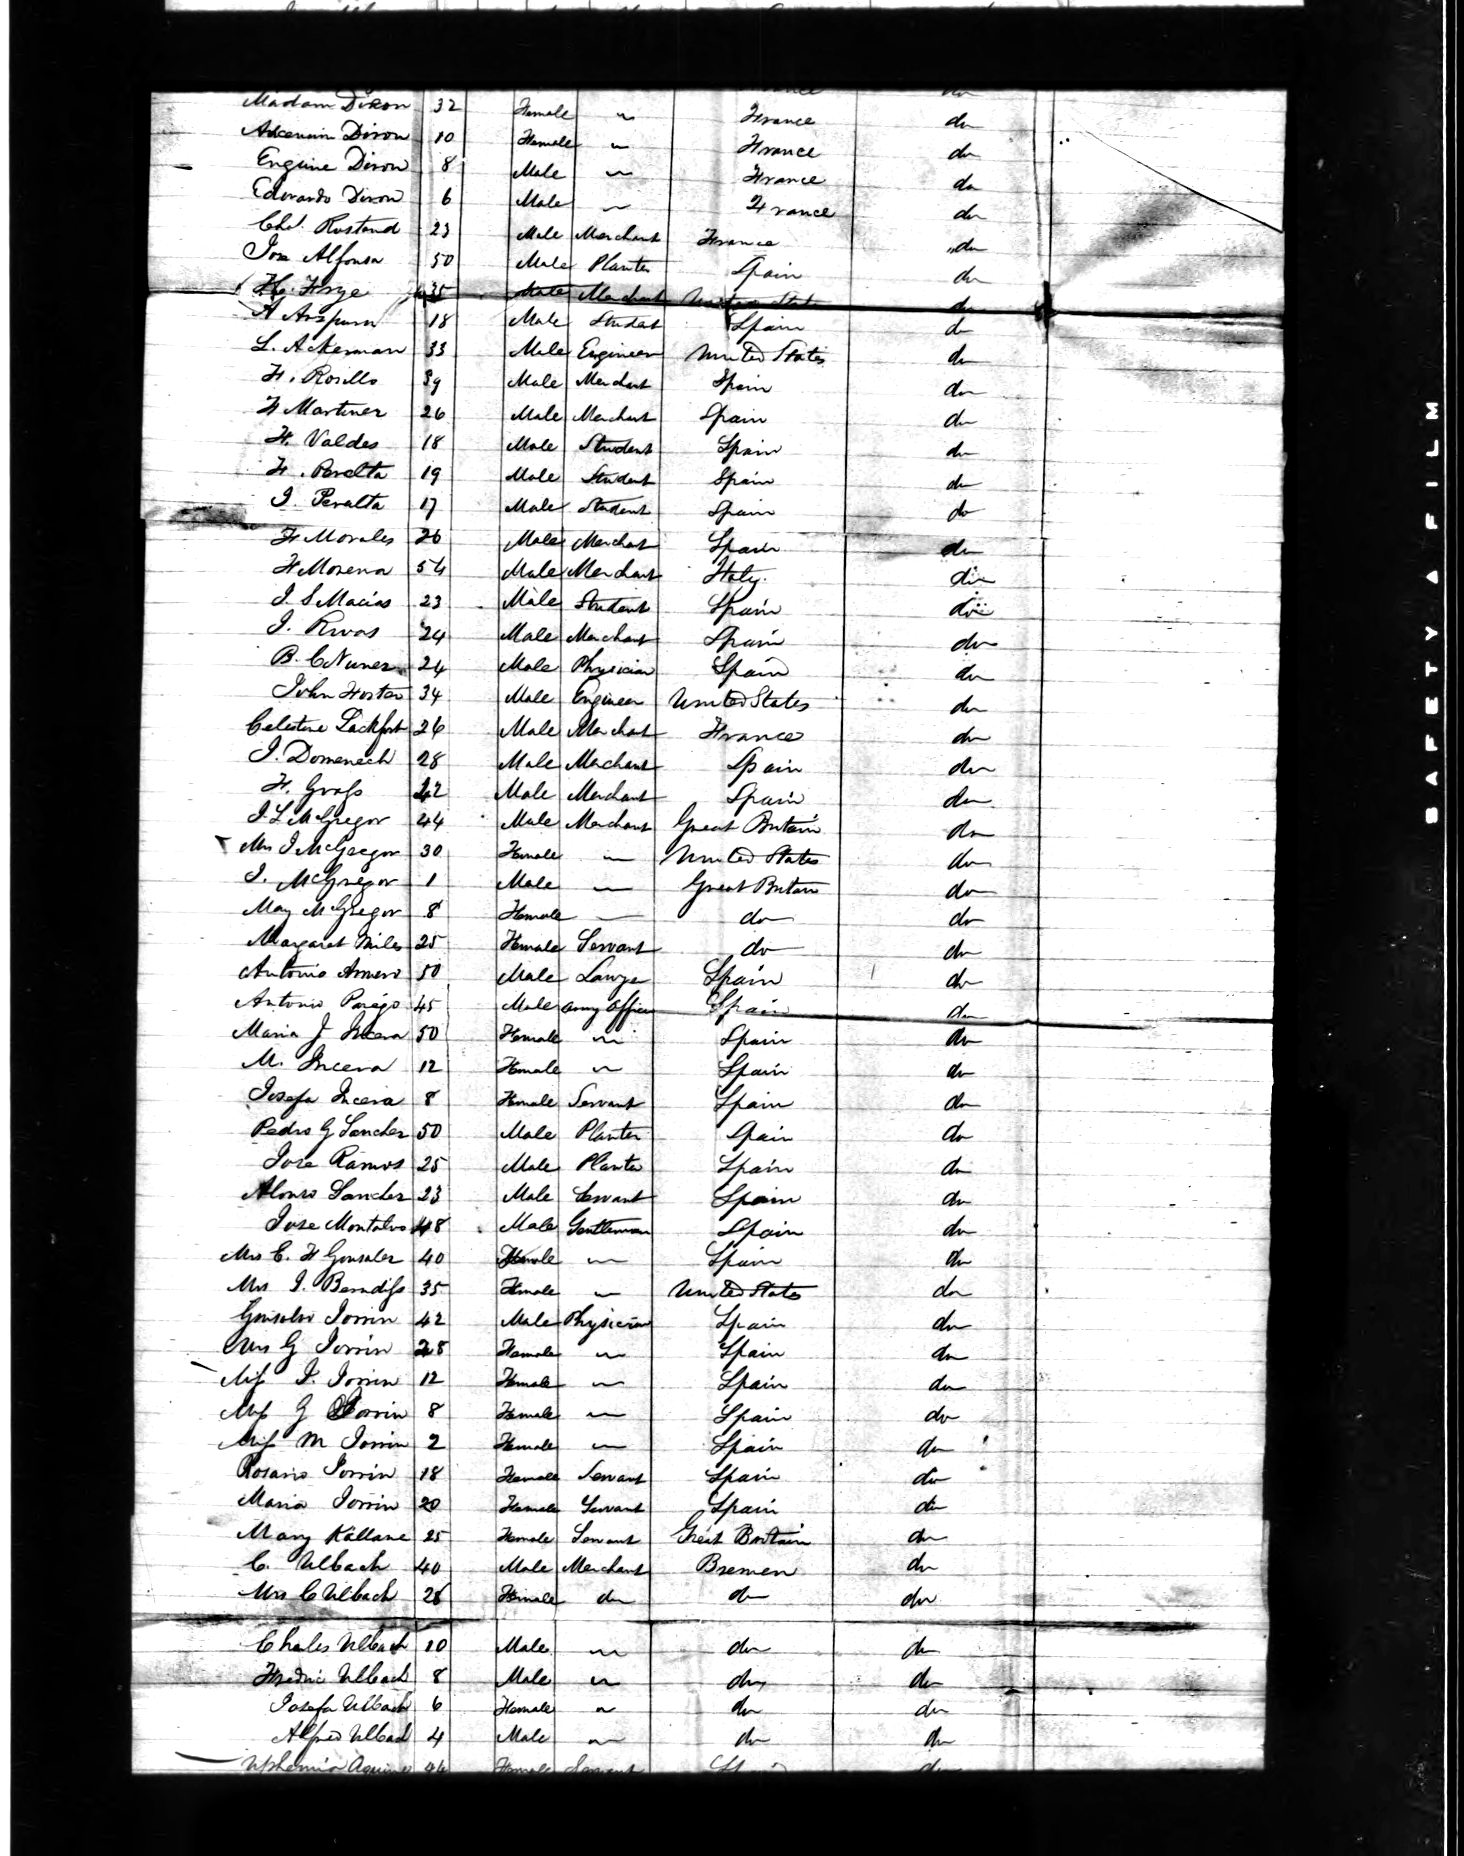 Madam Dixon 32 Female " France do
Dixon 10 Female " France do
Engine Dixon 8 Male " France do
Edwardo Dixon 6 Male " France do
Chs. Rostand 23 Male Merchant France " do
Jose Alfonso 50 Male Planter Spain do
H. Frye 35 Male Merchant United States do
18 Male Student Spain do
L. Ackerman 33 Male Engineer United States do
F. Rosillo 39 Male Merchant Spain do
F Martinez 26 Male Merchant Spain do
F. Valdes 18 Male Student Spain do
F. Peralta 19 Male Student Spain do
J. Peralta 17 Male Student Spain do
F Morales 26 Male Merchant Spain do
F Morena 54 Male Merchant Italy. do
J. S Macias 23 Male Student Spain do
J. Rivas 24 Male Merchant Spain do
B. C Nunez 24 Male Physician Spain do
John Foster 34 Male Engineer United States do
Celestine 26 Male Merchant France do
J. Domenech 28 Male Merchant Spain do
F. Grass Male Merchant Spain do
J. L McGregor 44 Male Merchant Great Britain do
Mrs J McGregor 30 Female " United States do
J. McGregor 1 Male " Great Britain do
May McGregor 8 Female " do do
Margaret Miles 25 Female Servant do do
Antonio Armero 50 Male Lawyer Spain do
Antonio 45 Male Army Officer Spain do
Maria J Incera 50 Female " Spain do
M. Incera 12 Female " Spain do
Josefa Incera 8 Female Servant Spain do
Pedro G Sanchez 50 Male Planter Spain do
Jose Ramos 25 Male Planter Spain do
Alonso Sanchez 23 Male Servant Spain do
Jose Montalvo 48 Male Gentleman Spain do
Mrs C. F Gonzalez 40 Female " Spain do
Mrs J. 35 Female " United States do
Gonsalvo Jorrin 42 Male Physician Spain do
Mrs G Jorrin 28 Female " Spain do
Miss J. Jorrin 12 Female " Spain do
Miss G Jorrin 8 Female " Spain do
Miss M Jorrin 2 Female " Spain do
Rosario Jorrin 18 Female Servant Spain do
Maria Jorrin 20 Female Servant Spain do
Mary Kallane 25 Female Servant Great Britain do
C. Ulbach 40 Male Merchant Bremen do
Mrs C Ulbach 28 Female do do do
Charles Ulbach 10 Male " do do
Fredric Ulbach 8 Male " do do
Josefa Ulbach 6 Female " do do
Alfred Ulbach 4 Male " do do
Female Servant Spain do
SAFETY A FILM